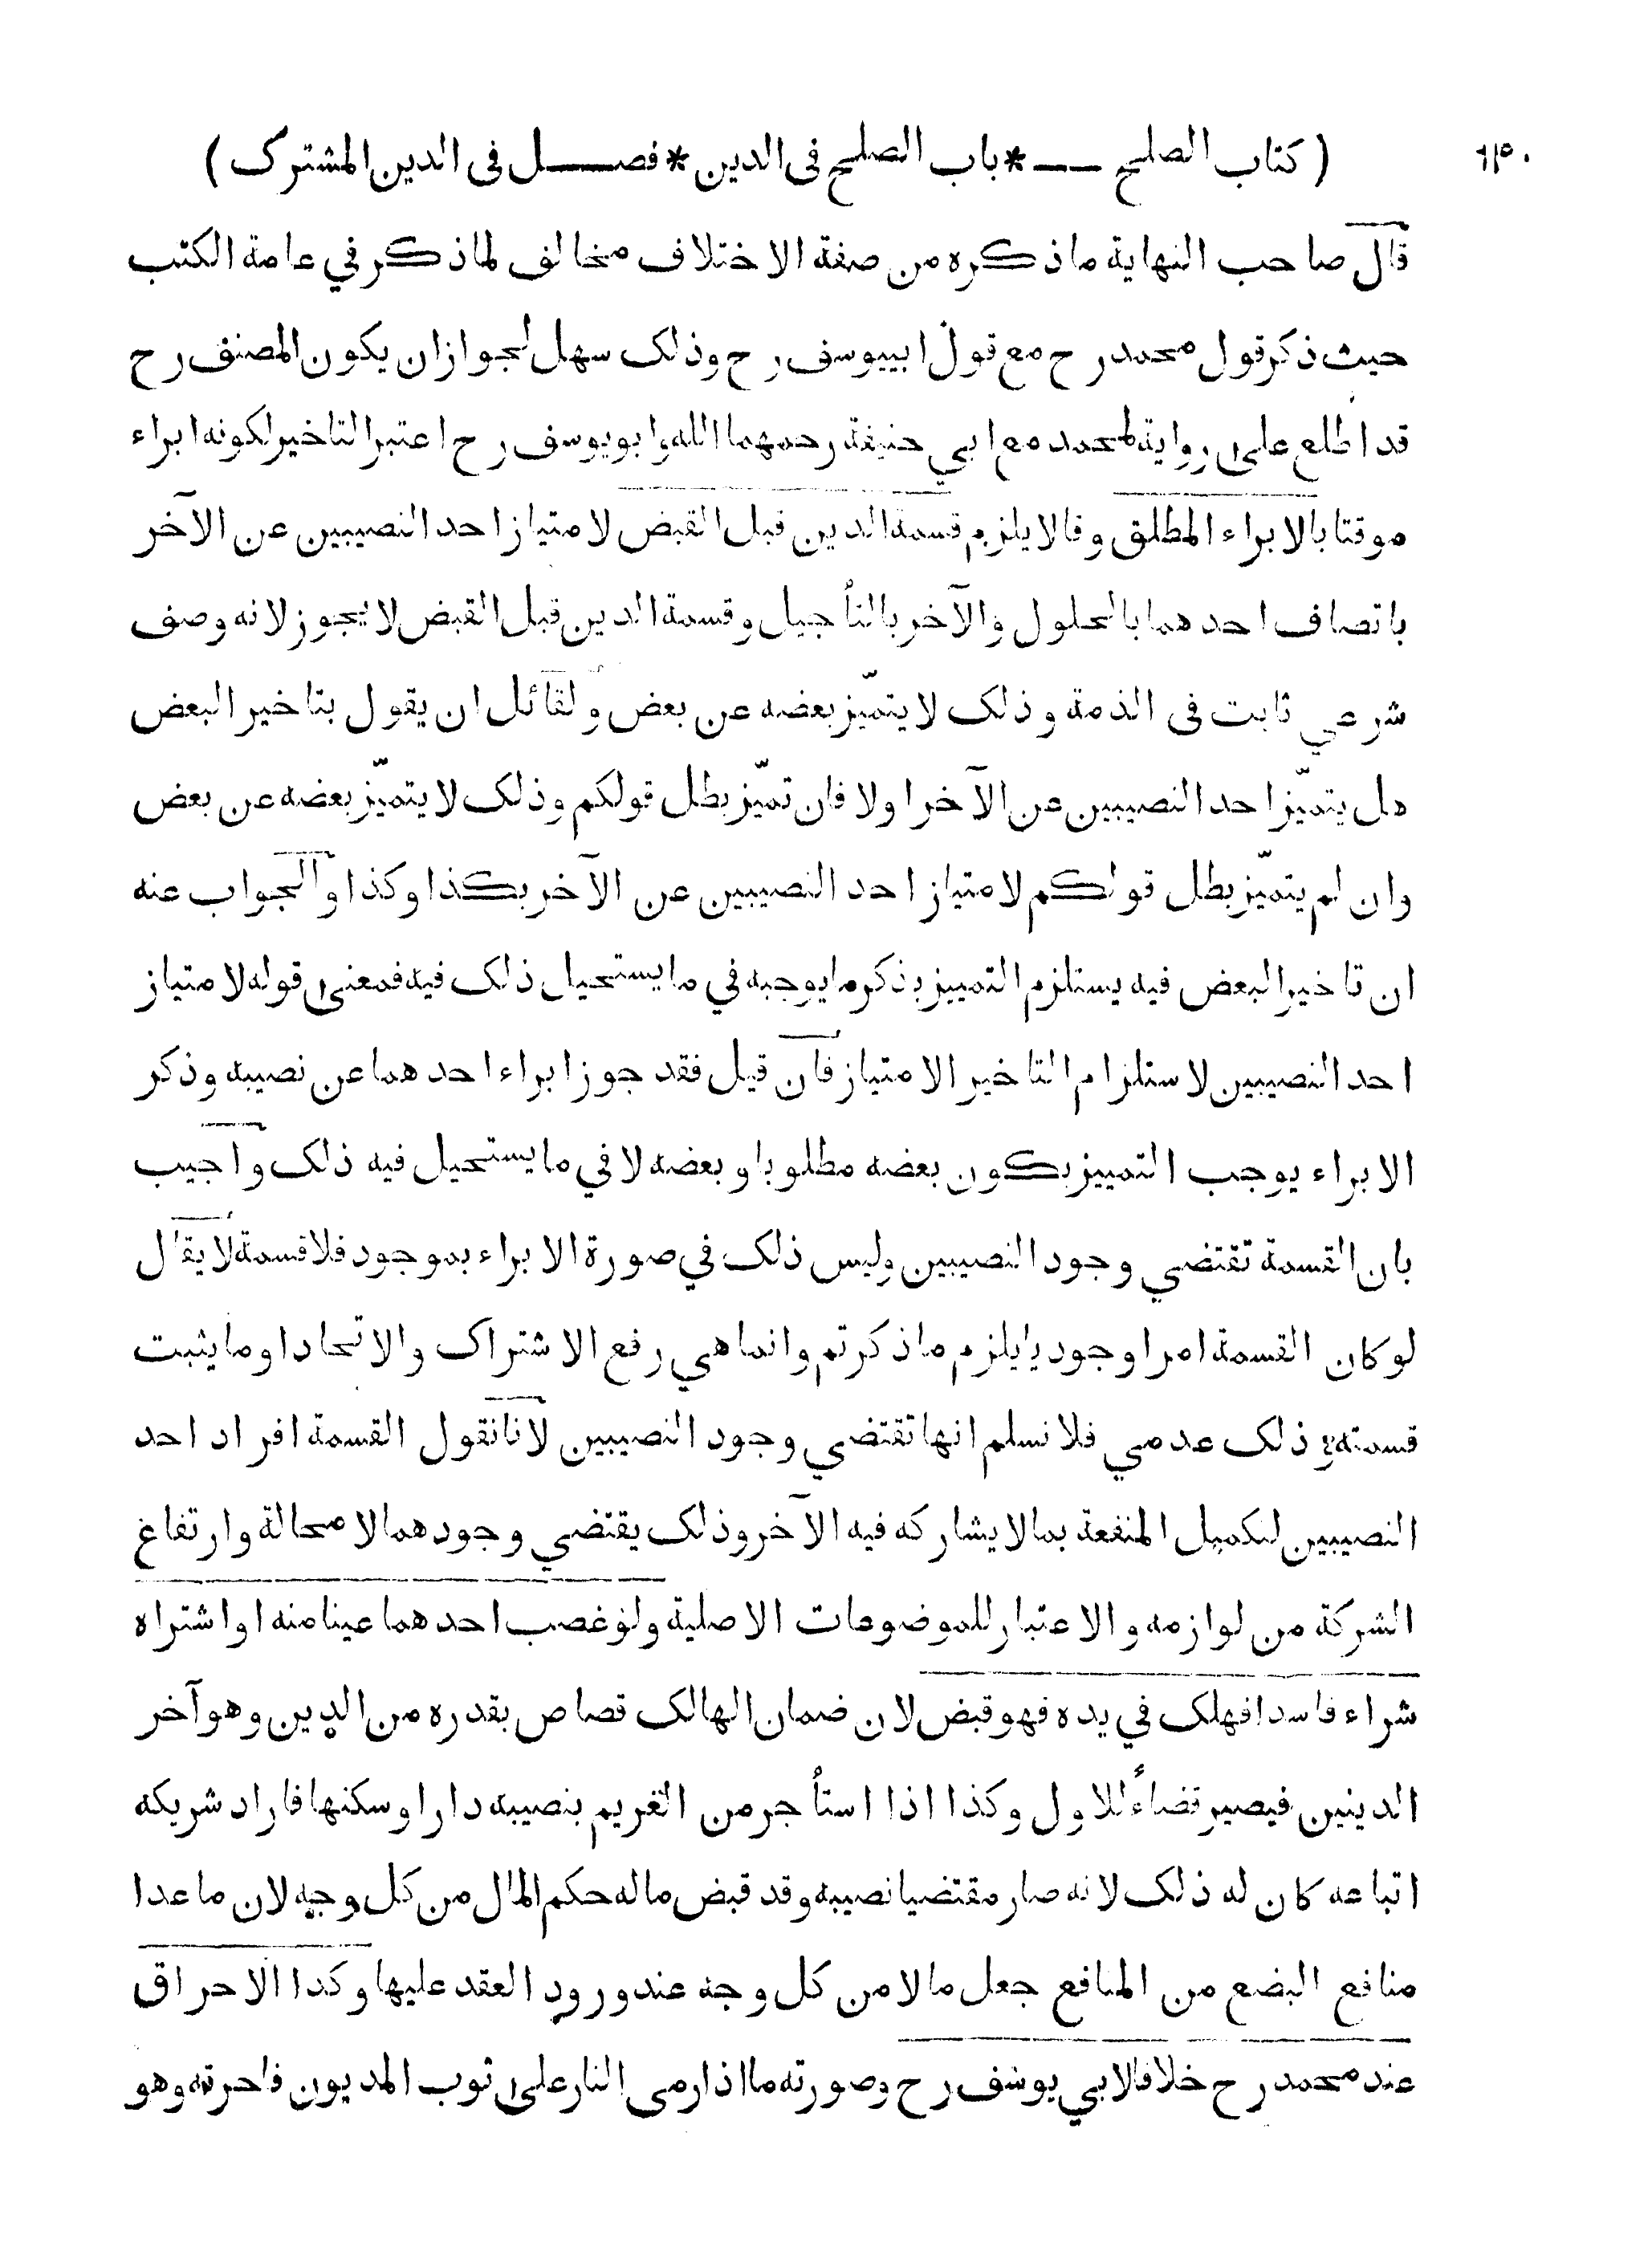 ( كتاب الصلح — * باب الصلح فى الدين * فصـــل فى الدين المشترك )
قال صاحب النهاية ماذكره من صفة الاختلاف مخالف لماذكر في عامة الكتب
حيث ذكر قول محمد رح مع قول ابييوسف رح وذلك سهل لجوازان يكون المصنف رح
قد اطلع على رواية لمحمد مع ابي حنيفة رحمهما الله وابويوسف رح اعتبرالتاخيرلكونه ابراء
موقتا بالابراء المطلق وقالا يلزم قسمة الدين قبل القبض لامتياز احد النصيبين عن الآخر
باتصاف احدهما بالحلول والآخر بالتأجيل وقسمة الدين قبل القبض لا يجوز لانه وصف
شرعي ثابت فى الذمة وذلك لا يتميّز بعضه عن بعض ولقائل ان يقول بتاخير البعض
هل يتميّز احد النصيبين عن الآخر اولا فان تميّز بطل قولكم وذلك لا يتميّز بعضه عن بعض
وان لم يتميّز بطل قولكم لامتياز احد النصيبين عن الآخر بكذا وكذا والجواب عنه
ان تاخير البعض فيه يستلزم التمييز بذكرما يوجبه في ما يستحيل ذلك فيه فمعنى قوله لامتياز
احد النصيبين لاستلزام التاخير الامتياز فان قيل فقد جوز ابراء احدهما عن نصيبه وذكر
الابراء يوجب التمييز بكون بعضه مطلوبا وبعضه لا في ما يستحيل فيه ذلك واجيب
بان القسمة تقتضي وجود النصيبين وليس ذلك في صورة الابراء بموجود فلا قسمة لا يقال
لو كان القسمة امرا وجوديا يلزم ماذكرتم وانما هي رفع الاشتراك والاتحاد او ما يثبت
قسمته وذلك عدمي فلا نسلم انها تقتضي وجود النصيبين لانا نقول القسمة افراد احد
النصيبين لتكميل المنفعة بما لا يشاركه فيه الآخر وذلك يقتضي وجودهما لامحالة وارتفاع
الشركة من لوازمه والاعتبار للموضوعات الاصلية ولو غصب احدهما عينا منه او اشتراه
شراء فاسدا فهلك في يده فهو قبض لان ضمان الهالك قصاص بقدره من الدين وهو آخر
الدينين فيصير قضاءً للاول وكذا اذا استأجر من الغريم بنصيبه دارا وسكنها فاراد شريكه
اتباعه كان له ذلك لانه صار مقتضيا نصيبه وقد قبض ماله حكم المال من كل وجه لان ماعدا
منافع البضع من المنافع جعل مالا من كل وجه عند ورود العقد عليها وكذا الاحراق
عند محمد رح خلافا لابي يوسف رح وصورته ما اذا رمى النار على ثوب المديون فاحرقه وهو